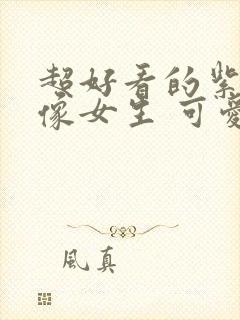 超好看的紫
像女生 可愛
風真